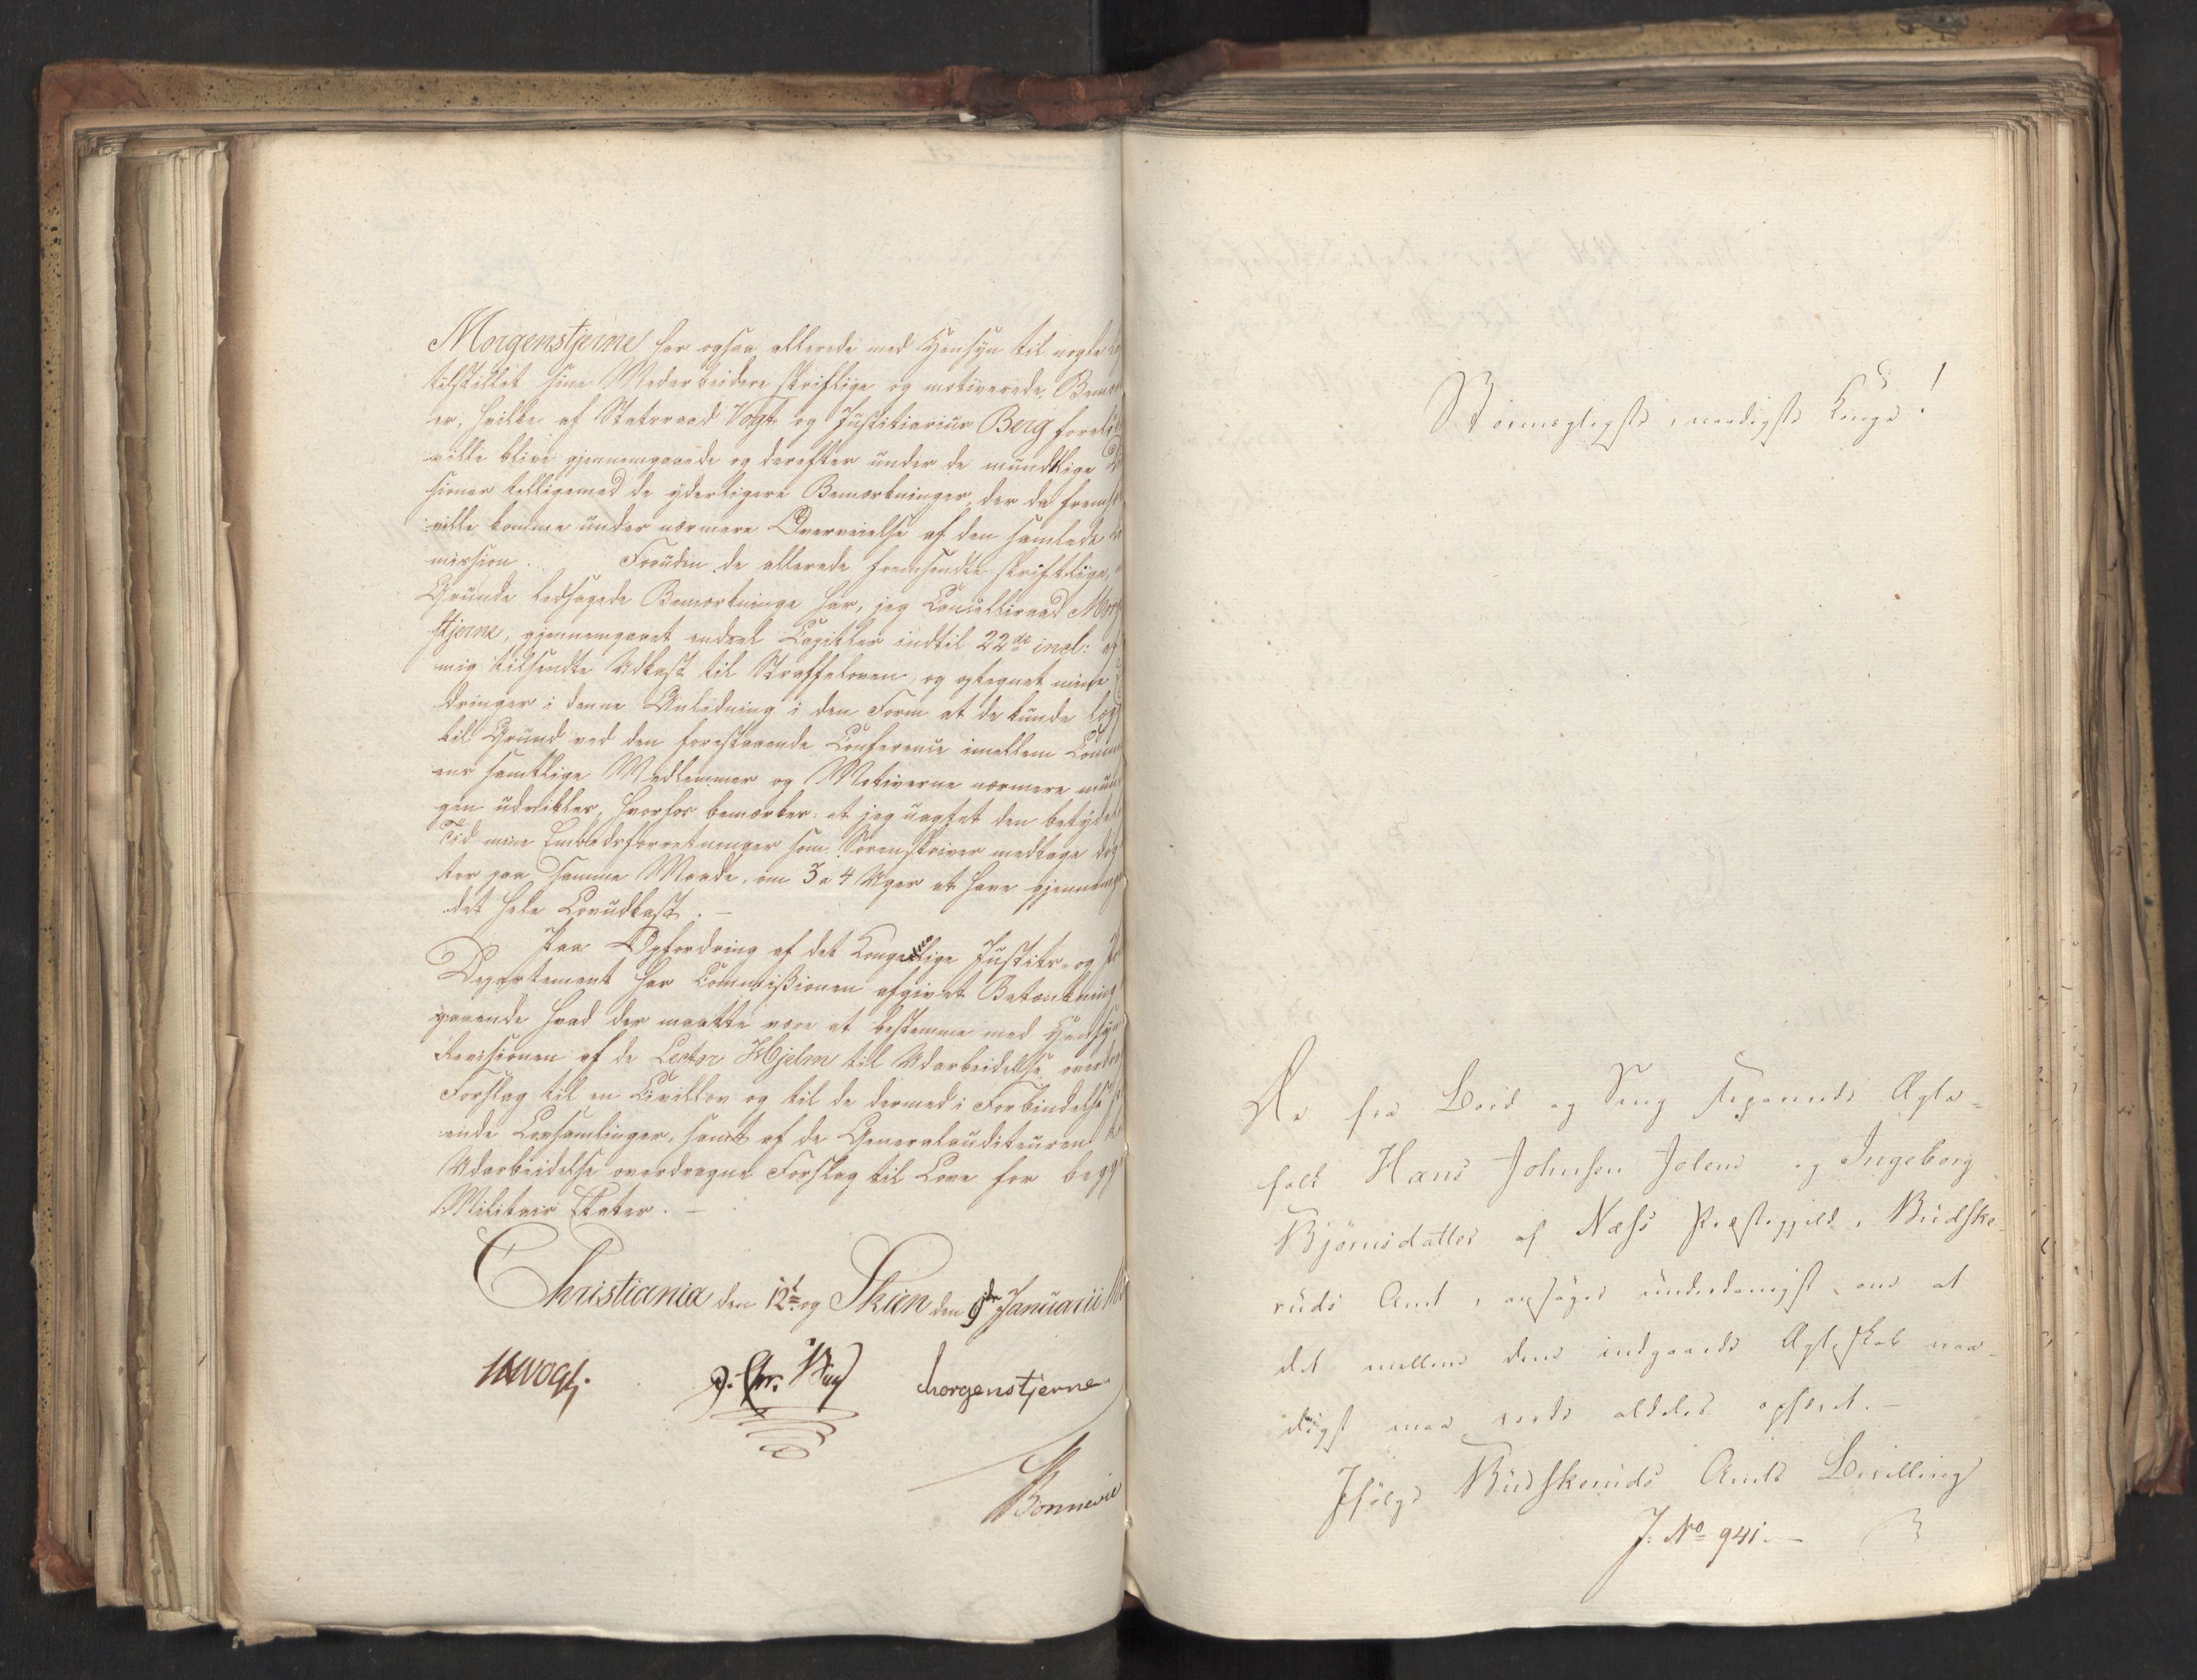 Morgenstjerne har ogsaa allerede med Hensyn til nogle
tilstillet sine Medarbeidere skriftlige og motiverede Bemær
er, hvilke af Statsraad Vogt og Justitiarius Berg
ville blive gjennemgaaede og derefter under de mundtlige
sioner tilligemed de yderligere Bemærkninger, der da frems
ville komme under nærmere Overveielse af den samlede
mission. Foruden de allerede fremsendte skriftlige,
Grunde ledsagede Bemærkninge har, jeg Cancelliraad Morgen
stjerne, gjennemgaaet endeel Capitler indtil 22de incl: af
mig tilsendte Udkast til Straffeloven, og optegnet mine
dringer i denne Anledning i den Form at de kunde læg
til Grund ved den forestaaende Conference imellem Comm
ens samtlige Medlemmer og Motiverne nærmere mun
gen udvikles, hvorhos bemærkes: at jeg uagtet den betyde
Tid mine Embedsforretninger som Sorenskriver medtage
ter paa samme Maade, om 3 a 4 Uger at have gjennemg
det hele Lovudkast. —
Paa Opfordring af det Kongelige Justits- og
Departement har Commissionen afgivet Betænkning
gaaende hvad der maatte være at bestemme med Hensyn
Revisionen af de Lector Hjelm til Udarbeidelse over
Forslag til en Civillov og til de dermed i Forbindelse
ende Lovsamlinger, samt af de Generalauditeuren
Udarbeidelse overdragne Forslag til Love for begge
Militair Etater. —
Christiania den 12t og Skien den 9de Januarii
Vogt.
J. Chr. Berg
Morgenstjerne
Bonnevie
Stormægtigste, naadigste Konge!
De fra Bord og Seng separerede Ægte-
folk Hans Johnsen Jolene og Ingeborg
Bjørnsdatter af Næss Præstegjeld, Budske-
ruds Amt, ansøger underdanigst om at
det mellem dem indgaaede Ægteskab naa-
digst maa vorde aldeles ophævet. —
Ifølge Budskeruds Amts Bevilling
J: No 941. —